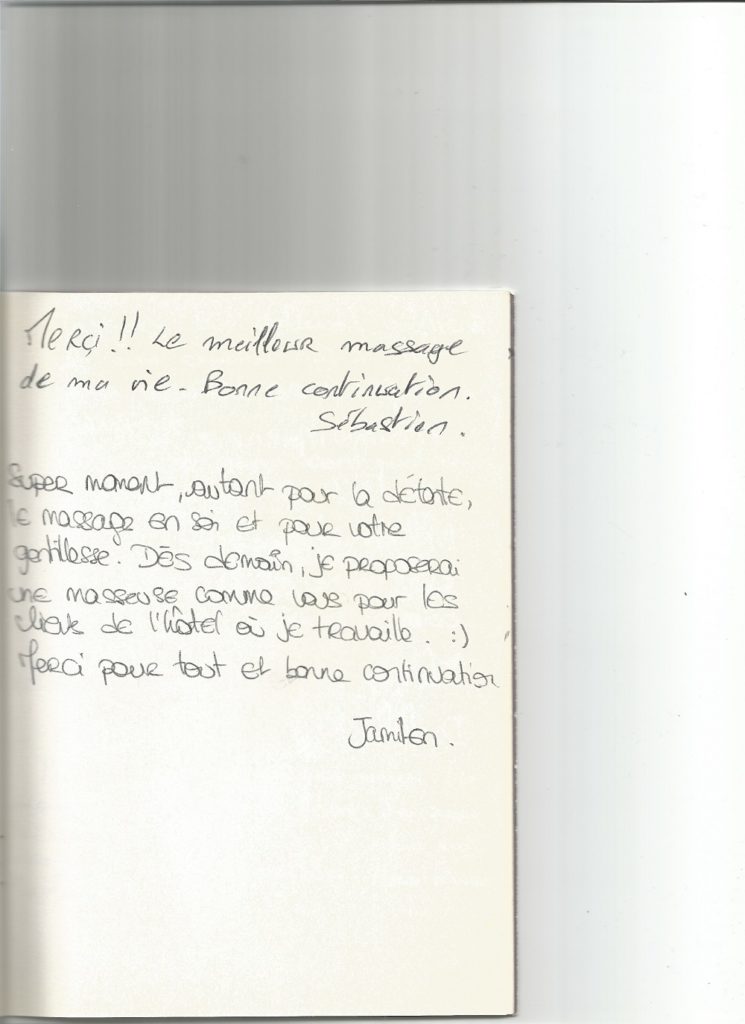 Merçi !! Le meilleur massage
de ma vie - Bonne continuation.
Sébastien.
Super moment, autant pour la détente,
le massage en soi et pour votre
gentillesse. Dès demain, je proposerai
une masseuse comme vous pour les
clients de l'hôtel où je travaille. :)
Merci pour tout et bonne continuation